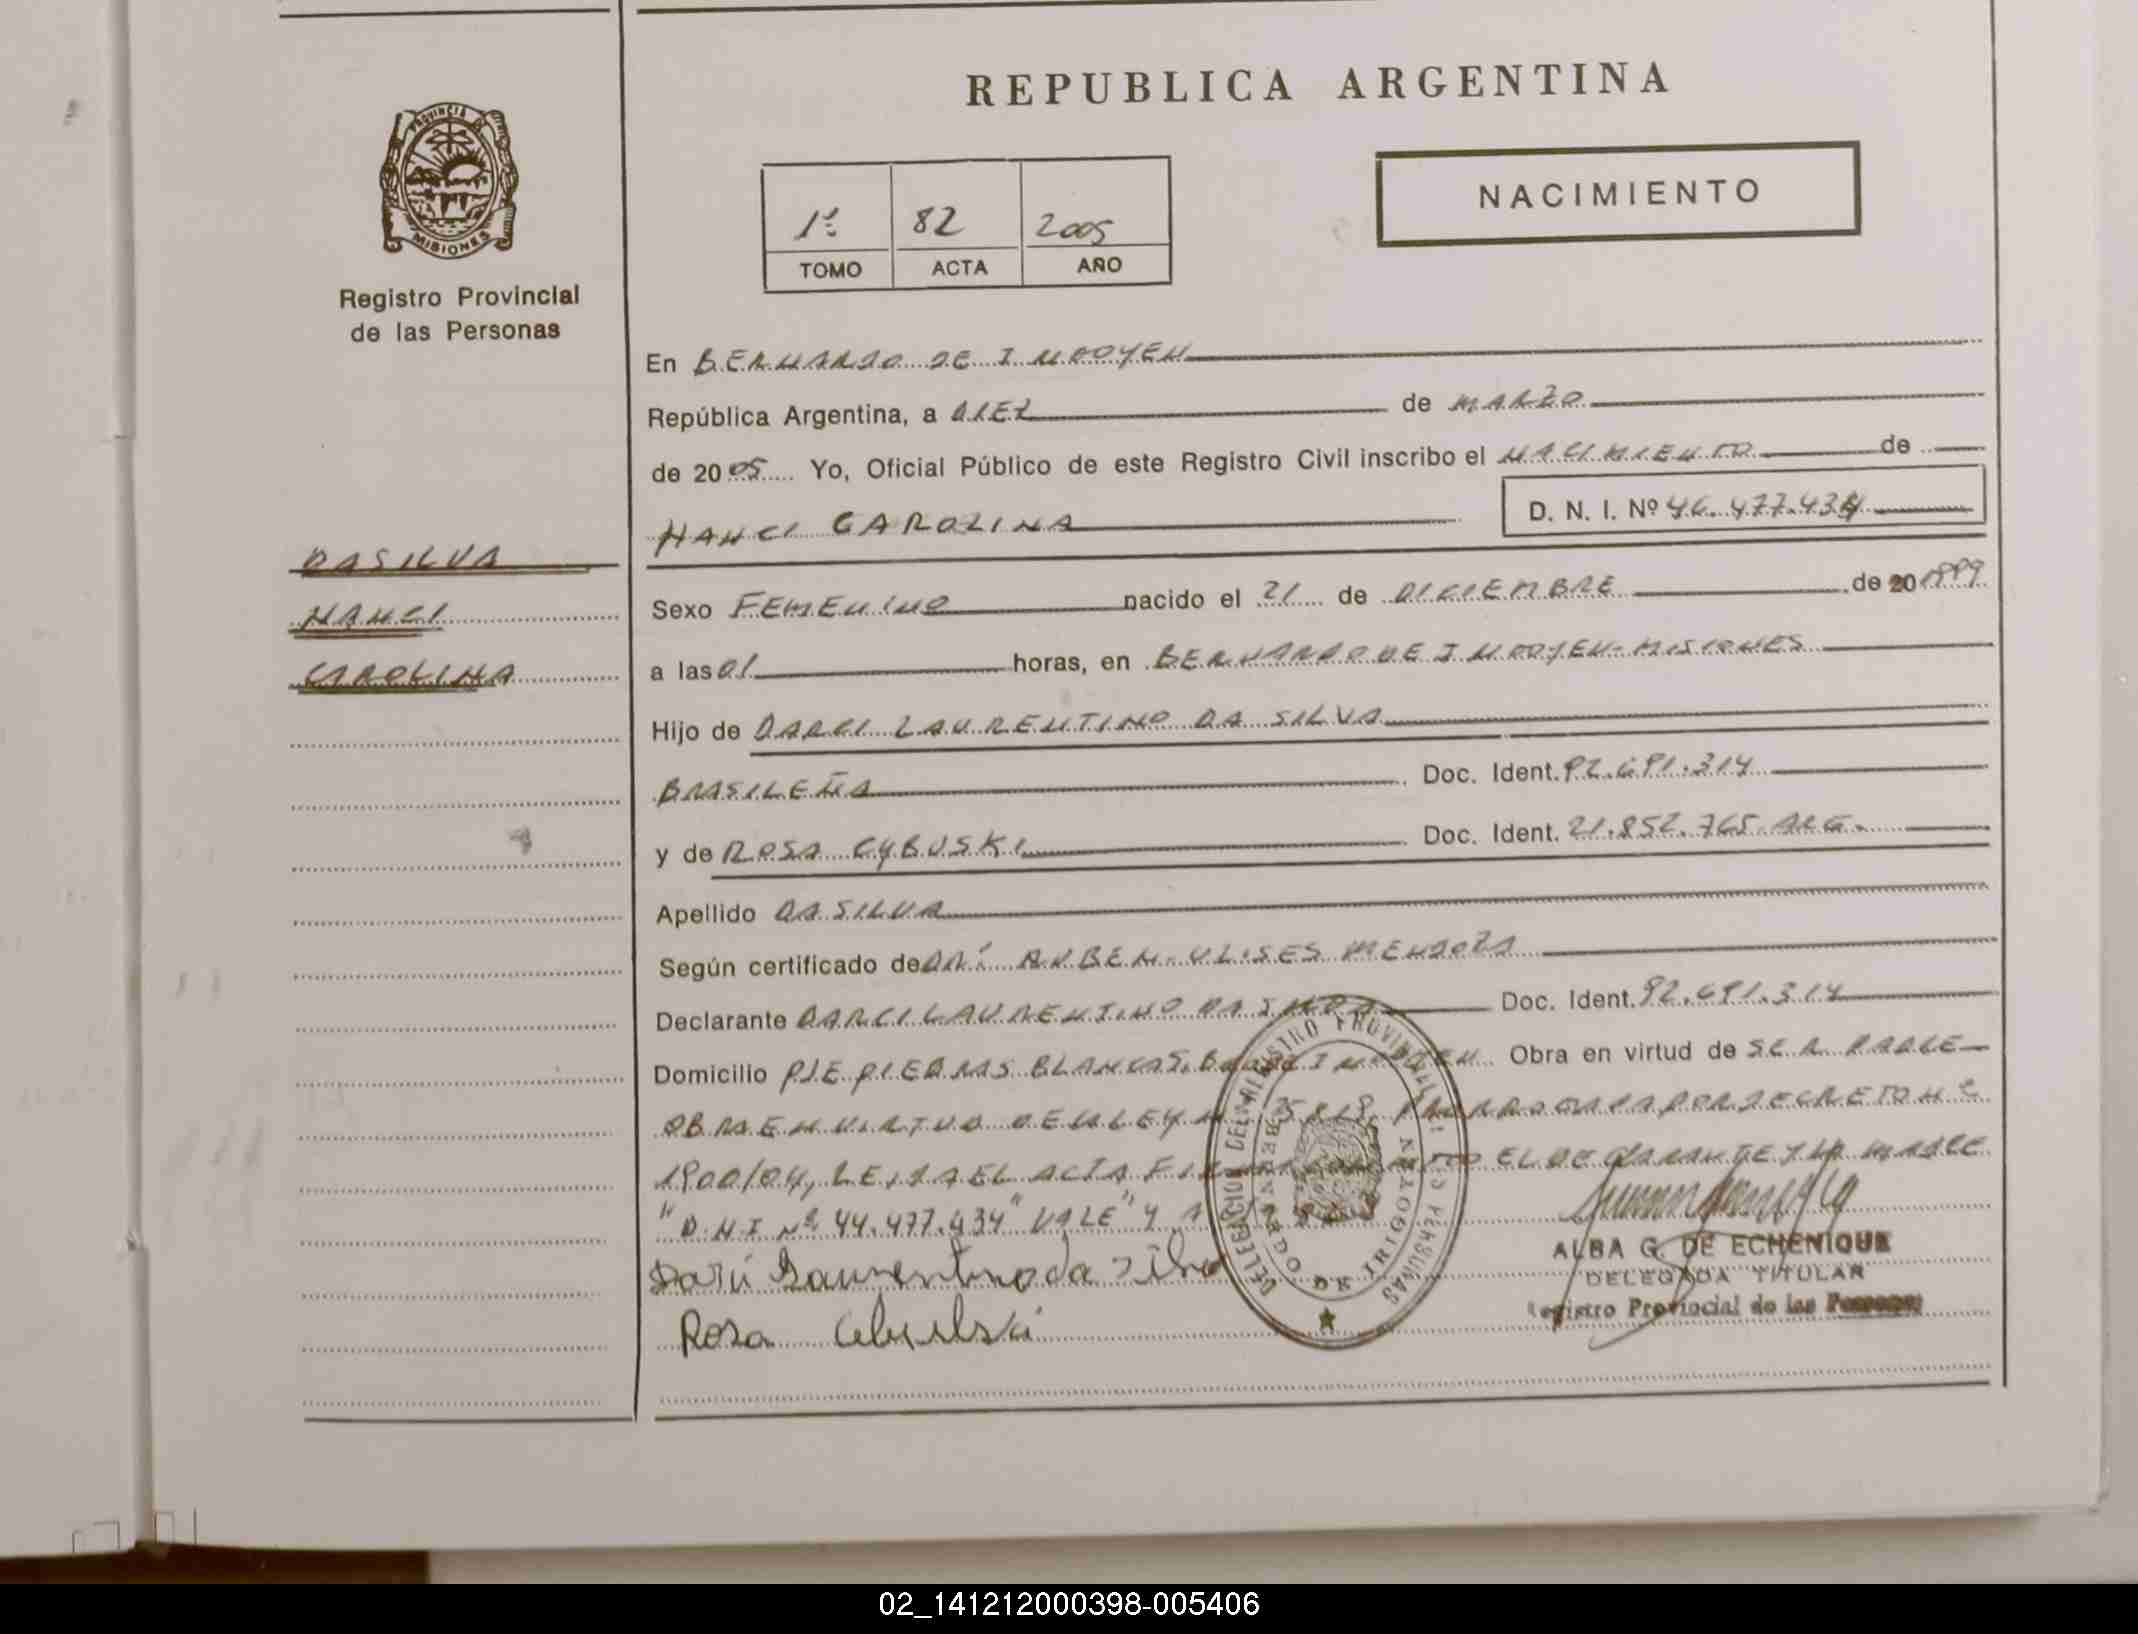 REPUBLICA ARGENTINA
PROVINCIA DE
MISIONES
Registro Provincial
de las Personas
1º 82 2005
TOMO ACTA AÑO
NACIMIENTO
En BERNARDO DE IRIGOYEN
República Argentina, a DIEZ de MARZO
de 2005 Yo, Oficial Público de este Registro Civil inscribo el NACIMIENTO de
NANCI CAROLINA
D. N. I. Nº 46.477.434
DASILVA
NANCI
CAROLINA
Sexo FEMENINO nacido el 21 de DICIEMBRE de 20 1999
a las 01 horas, en BERNARDO DE IRIGOYEN-MISIONES
Hijo de DARCI LAURENTINO DA SILVA
BRASILEÑA Doc. Ident. 92.691.314
y de ROSA CYBUSKI Doc. Ident. 21.852.765 ARG.
Apellido DA SILVA
Según certificado de DR. RUBEN ULISES MENDOZA
Declarante DARCI LAURENTINO DA SILVA Doc. Ident. 92.691.314
Domicilio PJE PIEDRAS BLANCAS, BDO DE IRIGOYEN Obra en virtud de SER PADRE
OBRA EN VIRTUD DE LA LEY Nº 25818 PRORROGADA POR DECRETO Nº
1900/04, LEIDA EL ACTA FIRMAN CONMIGO EL DECLARANTE Y LA MADRE
"D.N.I Nº 44.477.434" VALE"
Darci Laurentino da Silva
Rosa
DELEGACION DEL REGISTRO PROVINCIAL DE LAS PERSONAS
BERNARDO DE IRIGOYEN
ALBA G. DE ECHENIQUE
DELEGADA TITULAR
Registro Provincial de las Personas
02_141212000398-005406